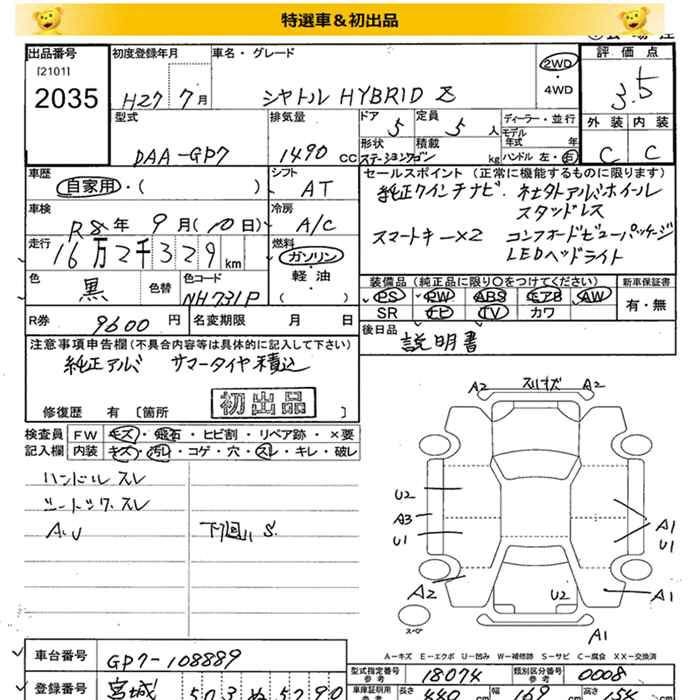 特選車＆初出品
出品番号 初度登録年月 車名・グレード 評価点
[2101]
2035
H27 7月 シャトル HYBRID Z 2WD・4WD 3.5
型式 排気量 ドア 定員 ディーラー・並行 外装 内装
DAA-GP7 1490 CC 5 5人 モデル年式 年 C C
形状 積載 ハンドル 左・右
ステーションワゴン kg
車歴 シフト セールスポイント(正常に機能するものに限ります)
自家用・( ) AT 純正7インチナビ 社外アルミホイール
スタッドレス
車検 冷房
R8年9月(10日) A/C スマートキー×2 コンフォートビューパッケージ
LEDヘッドライト
走行 燃料
16万2千329km ガソリン・軽油( )
色 色替 色コード 装備品(純正品に限り○をつけてください) 新車保証書
黒 NH731P PS PW ABS エアB AW 有・無
SR ナビ TV カワ
R券 9600円 名変期限 月 日 後日品 説明書
注意事項申告欄(不具合内容等は具体的に記入して下さい)
純正アルミ サマータイヤ積込
初出品
修復歴 有 [箇所 ]
検査員 FW キズ・飛石・ヒビ割・リペア跡・×要
記入欄 内装 キズ・汚れ・コゲ・穴・スレ・キレ・破レ
ハンドルスレ
A.U 下回り S.
A2 A2
U2
A3
U1
A1
U1
A2 U2 A1
スペア
A1
A－キズ E－エクボ U－凹み W－補修跡 S－サビ C－腐食 XX－交換済
車台番号 GP7-108889
型式指定番号 参考 18074 類別区分番号 参考 0008
登録番号 宮城 503 ぬ 5290
車庫証明用 参考 長さ 440 cm 幅 169 高さ